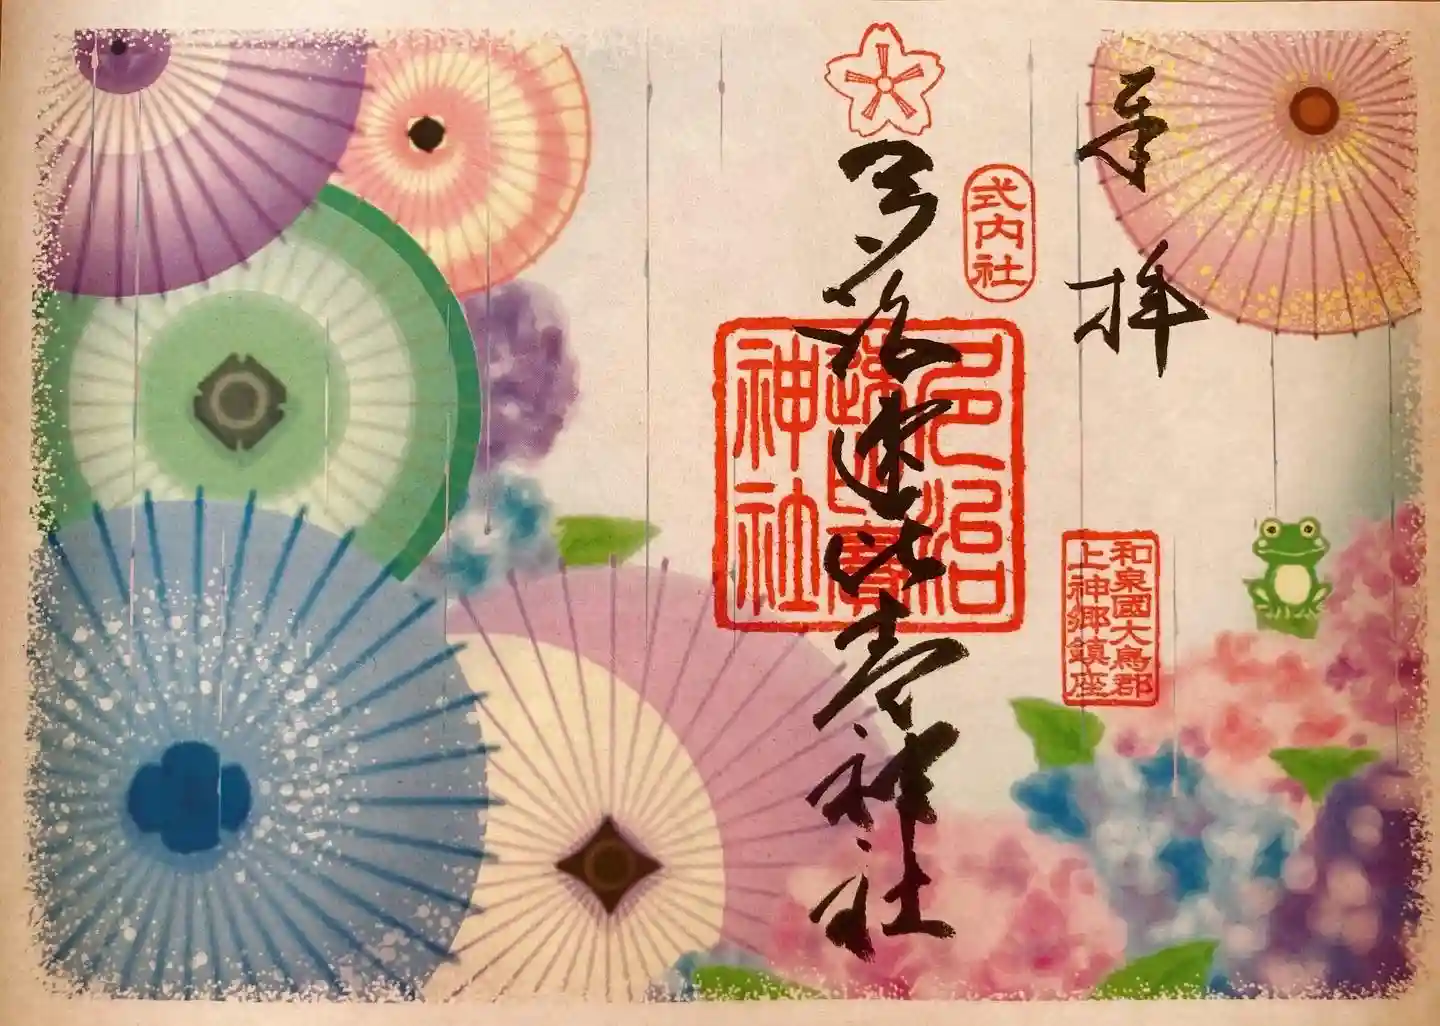 奉拝
和泉國大鳥郡
上神郷鎮座
式内社
多治速比売神社
多治
速比賣
神社